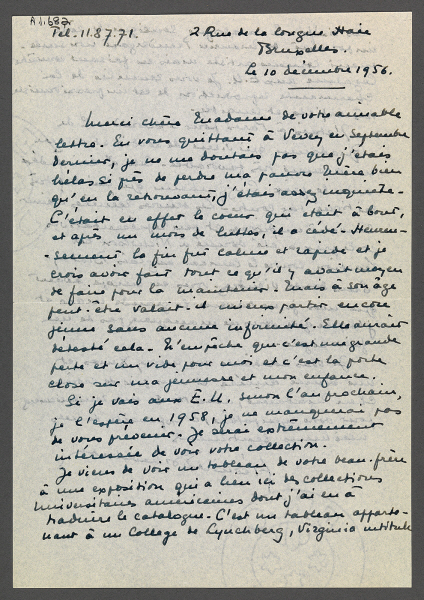 A 1.682
Tel. 11.87.71.
2 Rue de la Longue Haie
Bruxelles.
Le 10 décembre 1956.
Merci chère Madame de votre aimable
lettre. En vous quittant à Vevey en Septembre
dernier, je ne me doutais pas que j'étais
hélas si près de perdre ma pauvre Mère bien
qu'en la retrouvant, j'étais assez inquiète.
C'était en effet le coeur qui était à bout,
et après un mois de luttes, il a cédé. Heureu-
-sement la fin fut calme et rapide et je
crois avoir fait tout ce qu'il y avait moyen
de faire pour la maintenir. Mais à son âge
peut-être valait-il mieux partir encore
jeune sans aucune infirmité. Elle aurait
détesté cela. N'empêche que c'est une grande
perte et un vide pour moi et c'est la porte
close sur ma jeunesse et mon enfance.
Si je vais aux E.U. sinon l'an prochain,
je l'espère en 1958, je ne manquerai pas
de vous prévenir. Je serai extrêmement
intéressée de voir votre collection.
Je viens de voir un tableau de votre beau-frère
à une exposition qui a lieu ici des collections
universitaires américaines dont j'ai eu à
traduire le catalogue. C'est un tableau apparte-
nant à un College de Lynchberg, Virginia intitulé